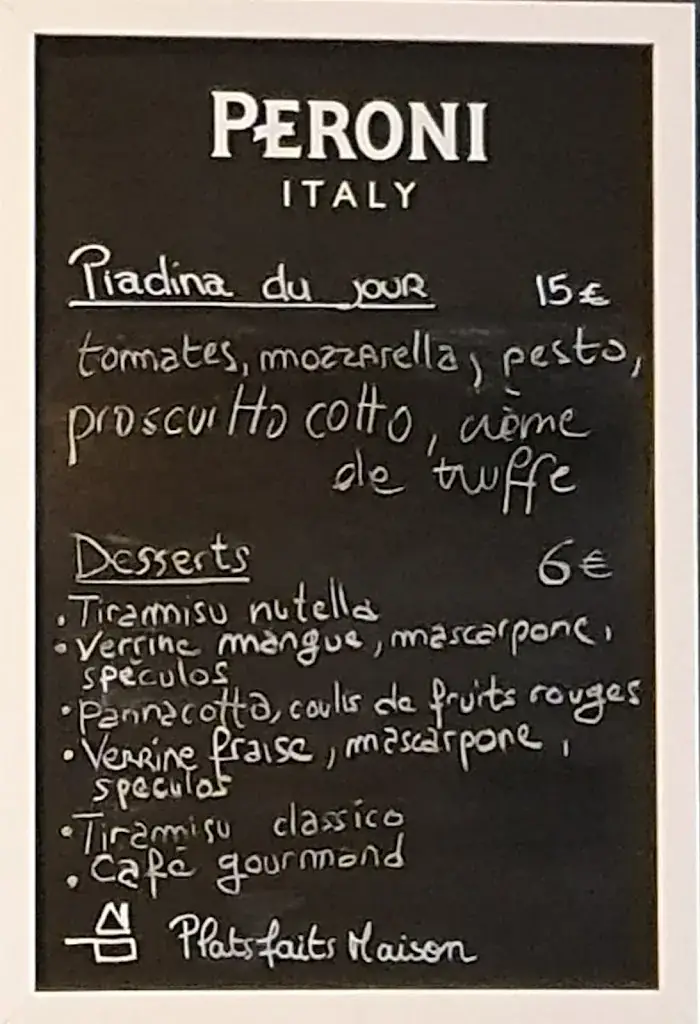 PERONI
ITALY
Piadina du jour 15€
tomates, mozzarella, pesto,
proscuitto cotto, crème
de truffe
Desserts 6€
• Tiramisu nutella
• Verrine mangue, mascarpone,
spéculos
• Pannacotta, coulis de fruits rouges
• Verrine fraise, mascarpone,
speculos
• Tiramisu classico
• Café gourmand
Plats faits Maison